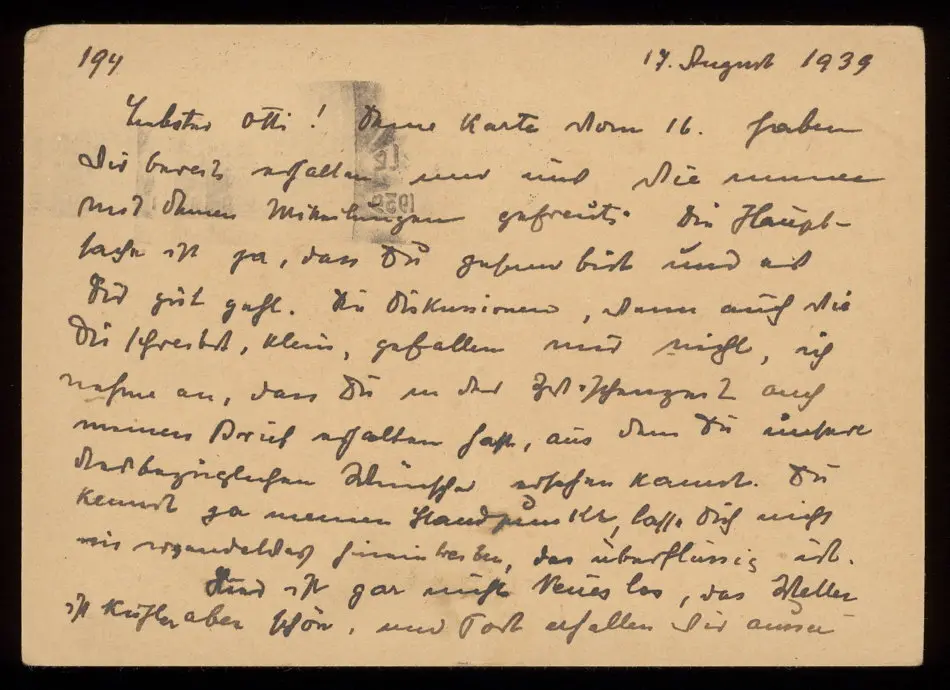 194 17. August 1939
Liebster Otti! Deine Karte vom 16. haben
wir bereits erhalten und uns wie immer
mit Deinen Mitteilungen gefreut. Die Haupt-
sache ist ja, dass Du gesund bist und es
Dir gut geht. Die Diskussionen, wenn auch wie
Du schreibst, klein, gefallen mir nicht, ich
nehme an, dass Du in der auch
meinen Brief erhalten hast, aus dem Du unsere
diesbezüglichen Wünsche ersehen kannst. Du
kennst ja meinen Standpunkt, lasse Dich nicht
in irgendetwas hineintreiben, das überflüssig ist.
Hier ist gar nichts Neues los, das Wetter
ist kühler aber schön, und Post erhalten wir ausser